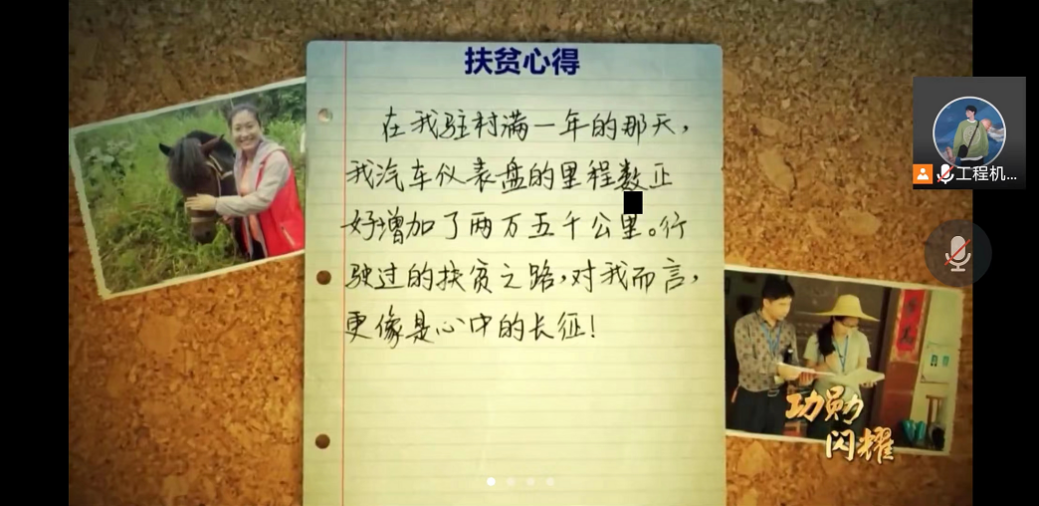 扶贫心得
在我驻村满一年的那天，
我汽车仪表盘的里程数正
好增加了两万五千公里。行
驶过的扶贫之路，对我而言，
更像是心中的长征！
工程机...
功勋
闪耀